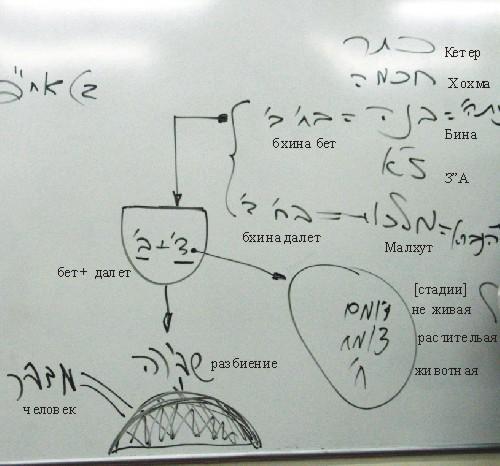 כתר
Кетер
חכמה
Хохма
בחי' ב' = בינה =
бхина бет
Бина
ז"א
З"А
בחי' ד' = מלכות =
бхина далет
Малхут
ד'+ב'
бет+ далет
[стадии]
דומם
не живая
צומח
растительая
חי
животная
שבירה
разбиение
מדבר
человек